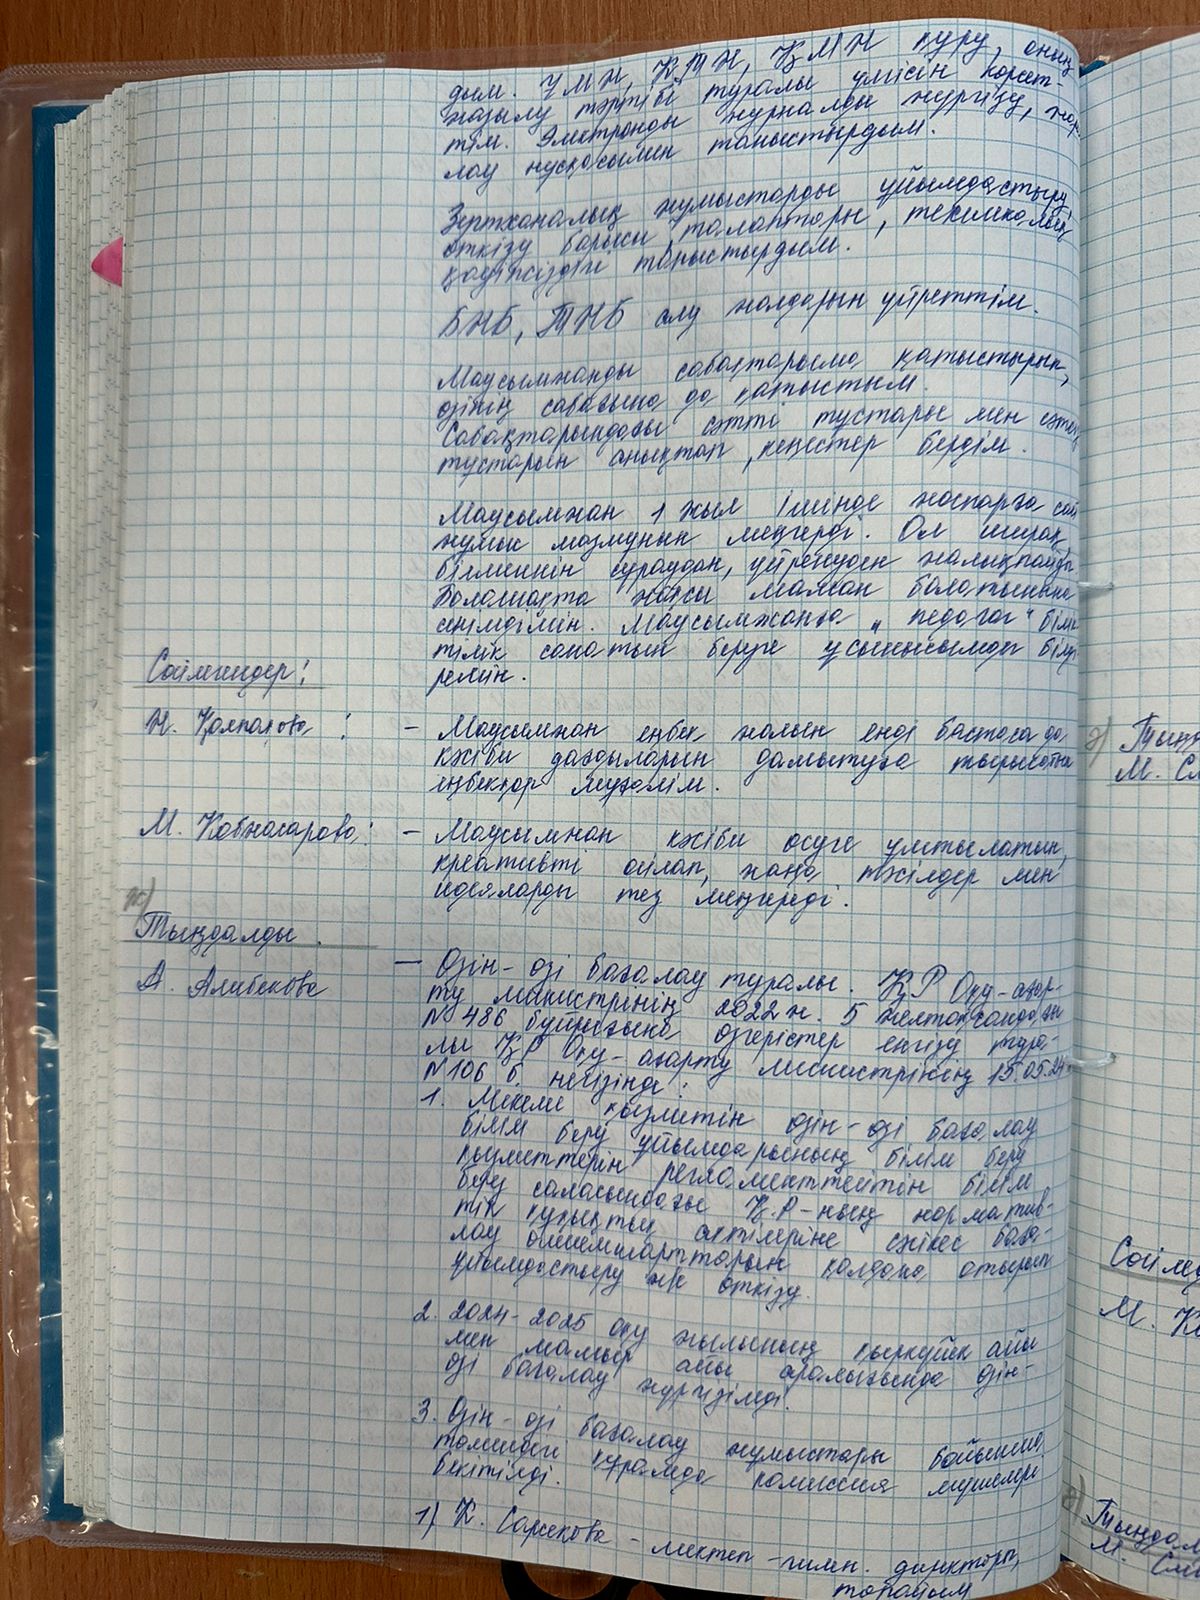 дым. ҰМЖ, ҚМЖ, ҚМЖ құру, оның
жазылу тәртібі туралы үлгісін көрсет-
тім. Электронды журналды жүргізу,
лау нұсқасымен таныстырдым.
Зертханалық жұмыстарды ұйымдастыру,
өткізу барысы талаптары, техникалық
қауіпсіздігі таныстырдым.
БЖБ, ТЖБ алу жолдарын үйреттім.
Маусымжанды сабақтарыма қатыстырып,
өзінің сабағына да қатыстым.
Сабақтарындағы сәтті тұстары мен
тұстарын анықтап, кеңестер бердім.
Маусымжан 1 жыл ішінде жоспарға сай
жұмыс мазмұнын меңгерді. Ол ширақ,
білмегенін сұраудан, үйренуден жалықпайды.
Болашақта жақсы маман болатынына
сенімдімін. Маусымжанға „педагог“ білік-
тілік санатын беруге ұсынысымды білді-
ремін.
Сөйлегендер:
Н. Қалпақова : – Маусымжан еңбек жолын енді бастаса да,
кәсіби дағдыларын дамытуға тырысатын
еңбекқор мұғалім.
М. Кобжасарова : – Маусымжан кәсіби өсуге ұмтылатын,
креативті ойлап, жаңа тәсілдер мен
идеяларды тез меңгереді.
Тыңдалды.
А. Алибекова – Өзін-өзі бағалау туралы. ҚР Оқу-ағар-
ту министрінің 2022 ж. 5 желтоқсандағы
№486 бұйрығына өзгерістер енгізу тура-
лы ҚР Оқу-ағарту министрінің 15.05.24
№106 б. негізінде:
1. Мекеме қызметін өзін-өзі бағалау
білім беру ұйымдарының білім беру
қызметтерін регламенттейтін білім
беру саласындағы ҚР-ның норматив-
тік құқықтық актілеріне сәйкес баға-
лау өлшемшарттарын қолдана отырып
ұйымдастыру және өткізу.
2. 2024-2025 оқу жылының қыркүйек айы
мен мамыр айы аралығында өзін-
өзі бағалау жүргізілді.
3. Өзін-өзі бағалау жұмыстары бойынша
төмендегі құрамда комиссия мүшелері
бекітілді.
1) К. Сарсекова – мектеп-гимн. директоры,
төрайым
Тыңд
М. Сл
Сөйлед
М. Ко
Тыңдал
М. Сли